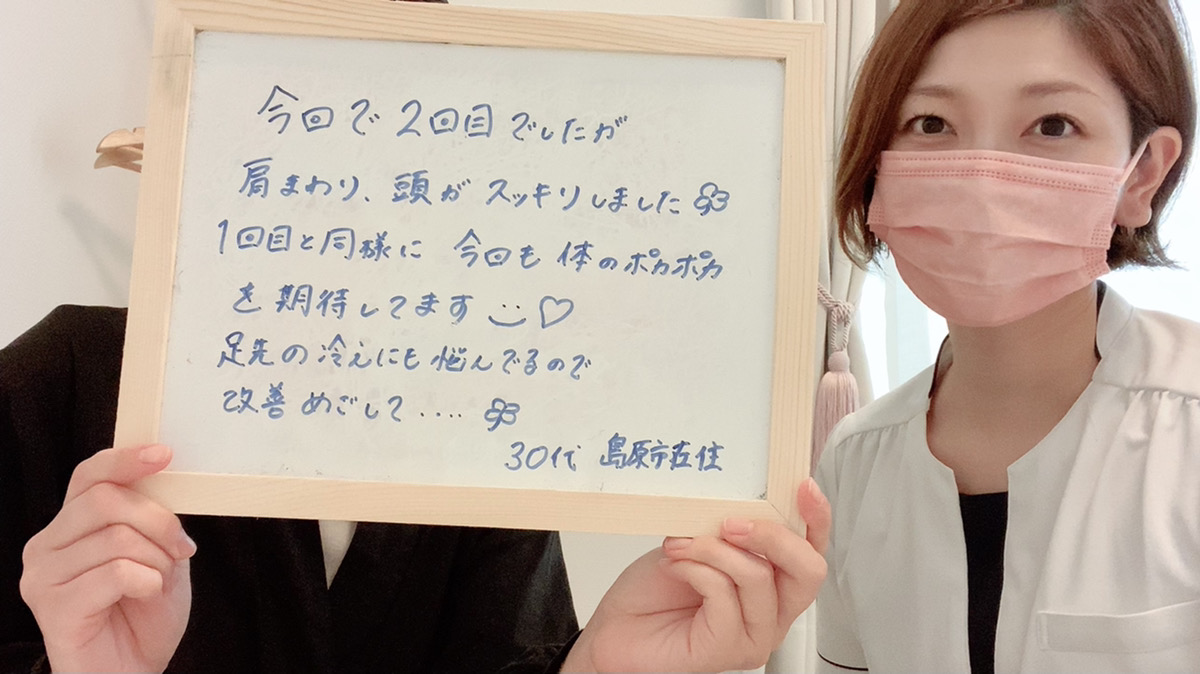 今回で2回目でしたが
肩まわり、頭がスッキリしました
1回目と同様に 今回も体のポカポカ
を期待してます
足先の冷えにも悩んでるので
改善めごして‥‥
30代 島原市在住